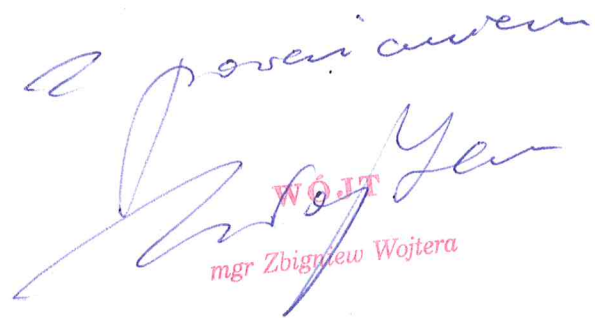 Z poważaniem
WÓJT
mgr Zbigniew Wojtera